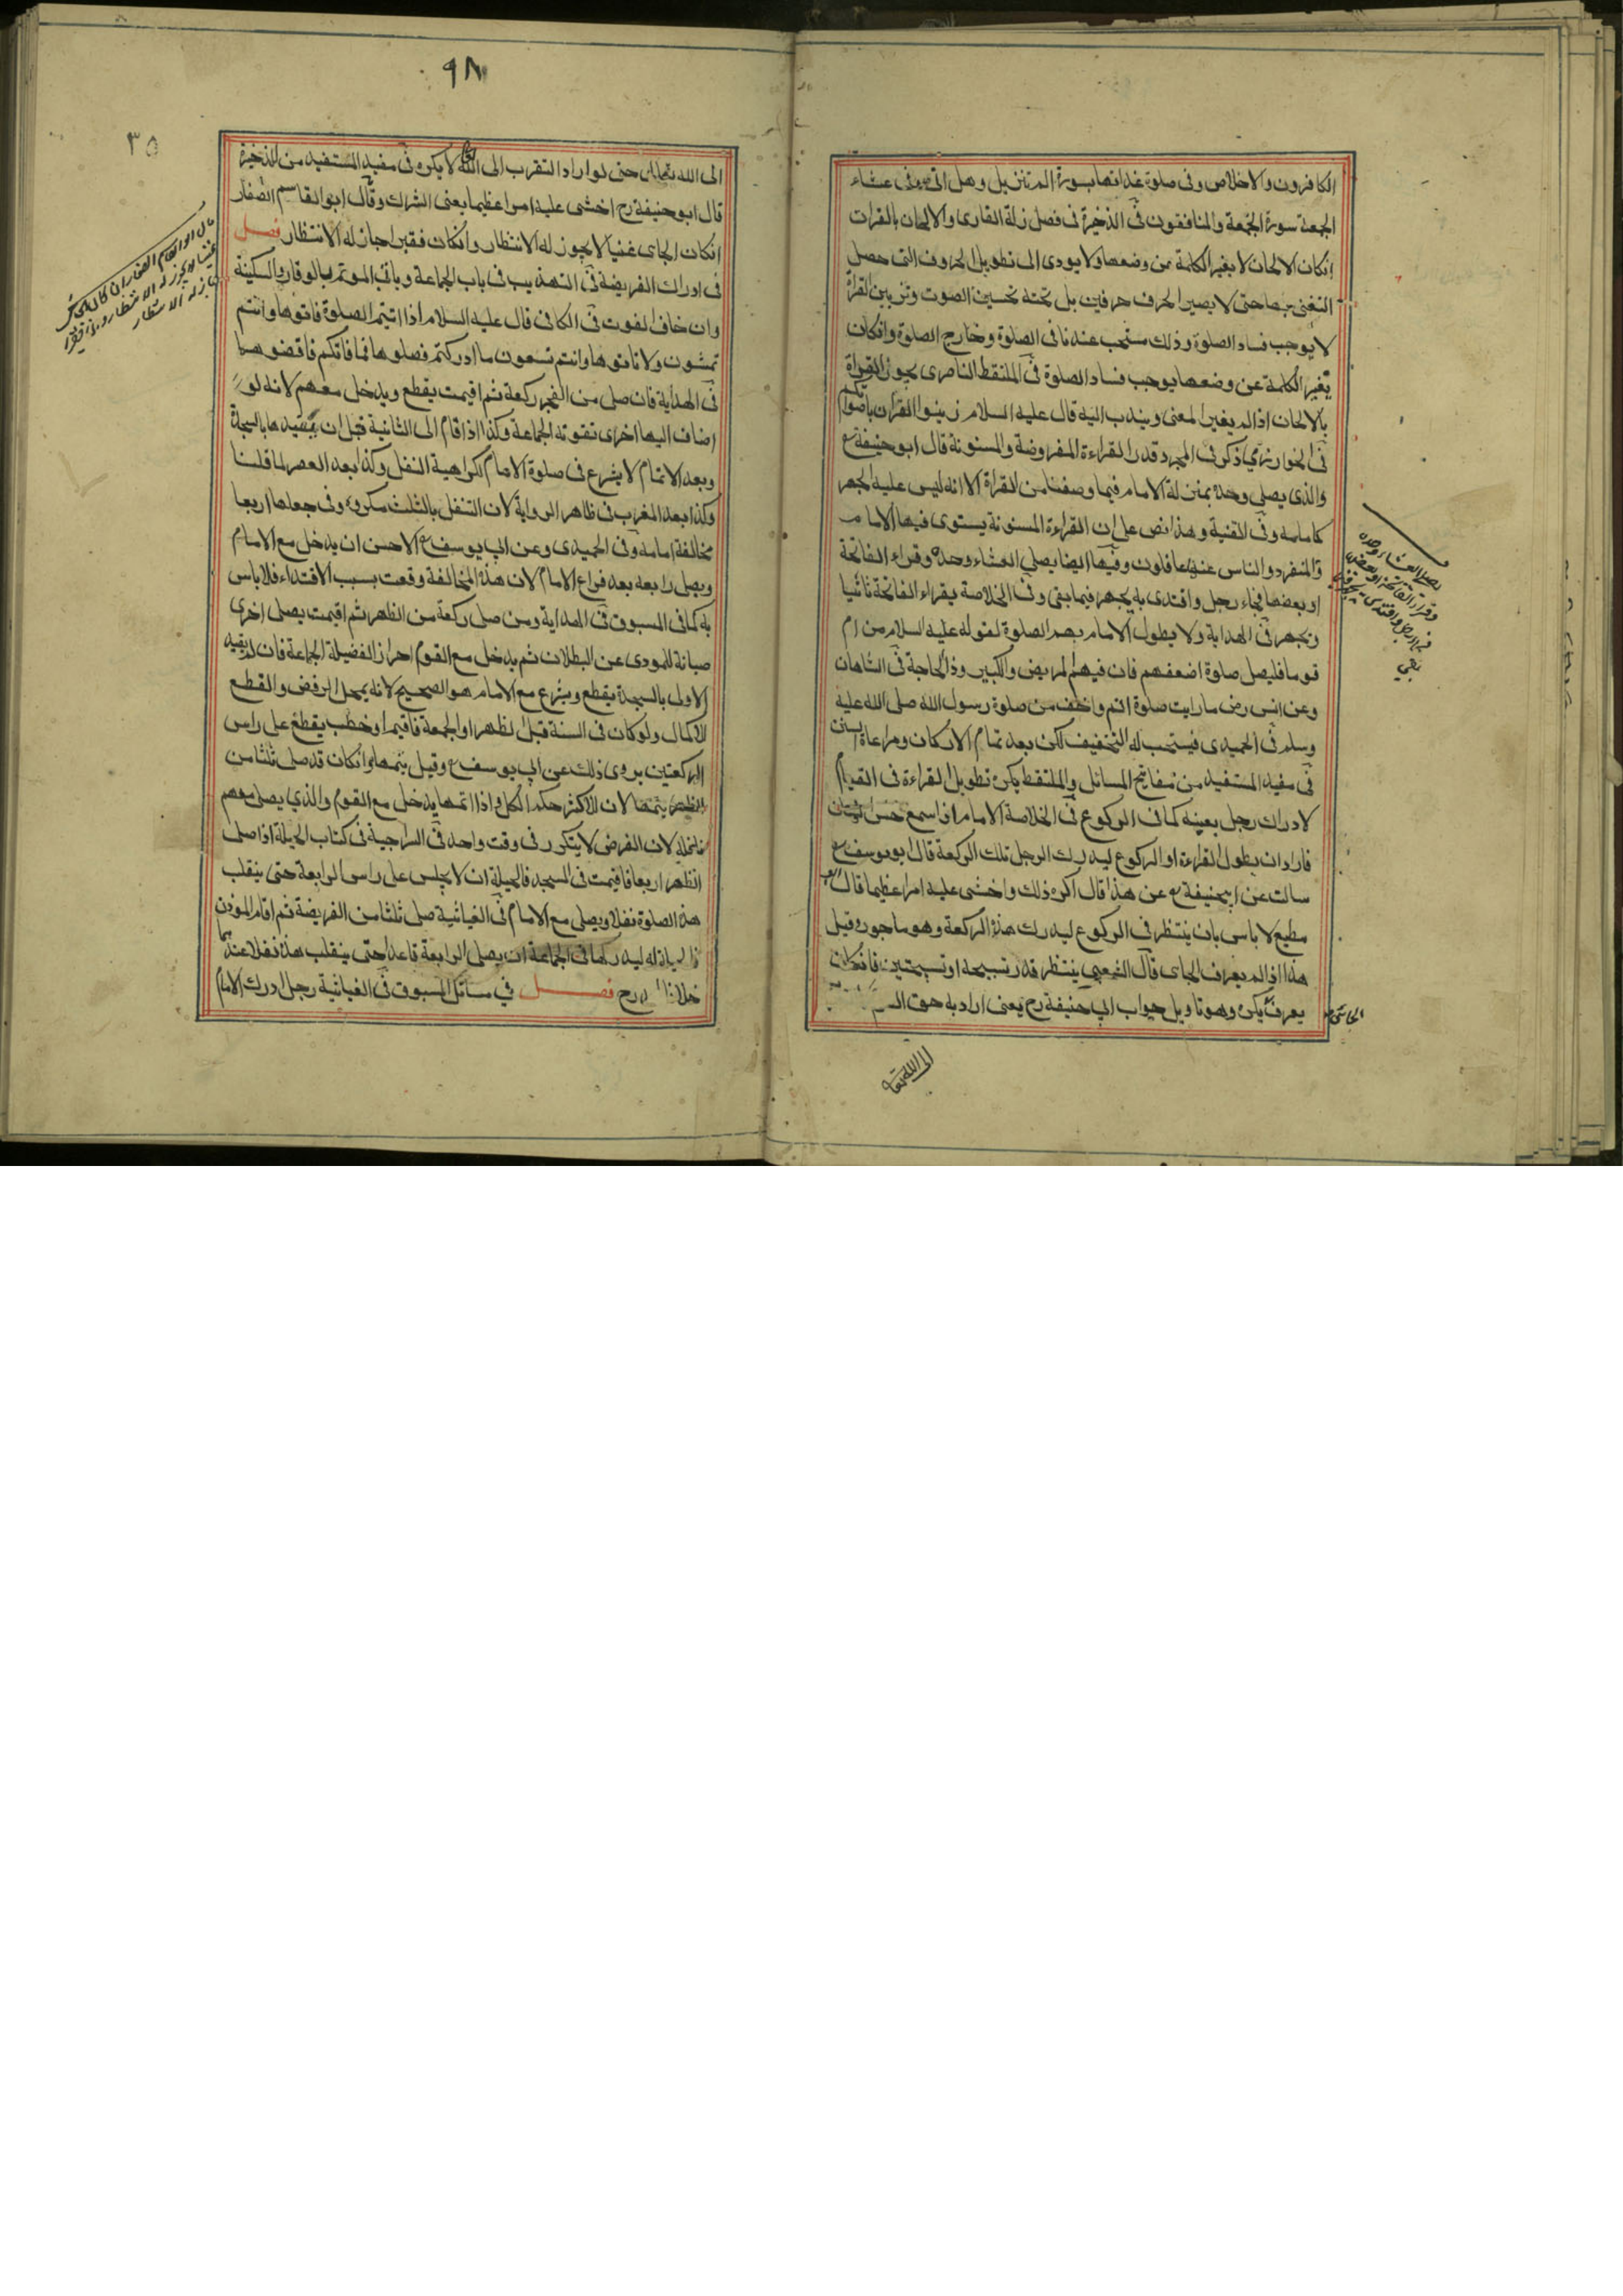 الكافرون والاخلاص وفى صلوة غداتها بسورة الم تنزيل وهل اتى وفى عشاء
الجمعة سورة الجمعة والمنافقون فى الذخيرة فى فصل زلة القارى والالحان بالقرات
انكان الالحان لا يغير الكلمة عن وضعها ولا يودى الى تطويل الحروف التى حصل
التغنى بها حتى لا يصير الحرف حرفين بل تحته تحسين الصوت وتزيين القراة
لا يوجب فساد الصلوة وذلك مستحب عندنا فى الصلوة وخارج الصلوة وانكان
يغير الكلمة عن وضعها يوجب فساد الصلوة فى الملتقط الناصرى يجوز القراة
بالالحان اذا لم يغير المعنى ويندب اليه قال عليه السلام زينوا القران باصواتكم
فى الخوارزمي ذكر فى المجرد قدر القراءة المفروضة والمسنونة قال ابو حنيفة رح
والذى يصلى وحده بمنزلة الامام فيما وصفنا من القراة الا انه ليس عليه الجهر
كامامه وفى القنية وهذا نص على ان القراءة المسنونة يستوى فيها الامام
والمنفرد والناس عنها غافلون وفيها ايضا يصلي العشاء وحده وقراء الفاتحة
او بعضها فجاء رجل واقتدى به يجهر فيما بقى وفى الخلاصة يقراء الفاتحة ثانيا
ويجهر فى الهداية ولا يطول الامام بهم الصلوة لقوله عليه السلام من ام
قوما فليصل صلوة اضعفهم فان فيهم المريض والكبير وذا الحاجة فى الشاهان
وعن انس رض ما رايت صلوة اتم واخف من صلوة رسول الله صلى الله عليه
وسلم فى الحميدى فيستحب له التخفيف لكن بعد تمام الاركان ومراعاة السنن
فى مفيد المستفيد من مفاتيح المسائل والملتقط يكره تطويل القراءة فى القيام
لادراك رجل بعينه كما فى الركوع فى الخلاصة الامام اذا سمع خشن
فاراد ان يطول القراءة او الركوع ليدرك الرجل تلك الركعة قال ابو يوسف رح
سالت عن ابيحنيفة رح عن هذا قال اكره ذلك واخشى عليه امرا عظيما قال ابو
مطيع لا باس بان ينتظر فى الركوع ليدرك هذه الركعة وهو ماجور وقيل
هذا اذا لم يعرف الجاى قال الشعبي ينتظر قدر تسبيحة او تسبيحتين فانكان
يعرف يكره وهو تاويل جواب ابي حنيفة رح يعنى اراد به حق
الجائى
الى الله تعا
يصلى العشاء وحده
وقراء الفاتحة او بعضها
فجاء رجل واقتدى به يجهر فيما
بقي
٩٨
٣٥
الى الله تعالى حتى لو اراد التقرب الى الله تعا لا يكره فى مفيد المستفيد من الذخيرة
قال ابو حنيفة رح اخشى عليه امرا عظيما يعنى الشرك وقال ابو القاسم الصفار
انكان الجاى غنيا لا يجوز له الانتظار وانكان فقيرا جاز له الانتظار فصل
فى ادراك الفريضة فى التهذيب فى باب الجماعة وياتى الموتم بالوقار والسكينة
وان خاف الفوت فى الكافى قال عليه السلام اذا اتيتم الصلوة فاتوها وانتم
تمشون ولا تاتوها وانتم تسعون ما ادركتم فصلوها فما فاتكم فاقضوها
فى الهداية فان صلى من الفجر ركعة ثم اقيمت يقطع ويدخل معهم لانه لو
اضاف اليها اخرى تفوته الجماعة وكذا اذا قام الى الثانية قبل ان يقيدها بالسجدة
وبعد الاتمام لا يشرع فى صلوة الامام لكراهية النفل وكذا بعد العصر لما قلنا
وكذا بعد المغرب فى ظاهر الرواية لان التنفل بالثلث مكروه وفى جعلها اربعا
مخالفة امامه وفى الحميدى وعن ابي يوسف رح الاحسن ان يدخل مع الامام
ويصلى رابعه بعد فراغ الامام لان هذه المخالفة وقعت بسبب الاقتداء فلا باس
به كما فى المسبوق فى الهداية ومن صلى ركعة من الظهر ثم اقيمت يصلى اخرى
صيانة للمودى عن البطلان ثم يدخل مع القوم احراز الفضيلة الجماعة فان لم يقيد
الاولى بالسجدة يقطع ويشرع مع الامام هو الصحيح لانه بمحل الرفض والقطع
للاكمال ولو كان فى السنة قبل الظهر او الجمعة فاقيم او خطب يقطع على راس
الركعتين يروى ذلك عن ابي يوسف رح وقيل يتمها وانكان قد صلى ثلثا من
الظهر يتمها لان للاكثر حكم الكل واذا اتمها يدخل مع القوم والذي يصلى معهم
نافلة لان الفرض لا يتكرر فى وقت واحد فى السراجية فى كتاب الحيلة اذا صلى
الظهر اربعا فاقيمت فى المسجد فالحيلة ان لا يجلس على راس الرابعة حتى ينقلب
هذه الصلوة نفلا ويصلى مع الامام فى الغياثية صلى ثلثا من الفريضة ثم اقام الموذن
ليدركها فى الجماعة ان يصلى الرابعة قاعدا حتى ينقلب هذه نفلا عندهما
خلافا رح فصل في مسائل المسبوق فى الغياثية رجل ادرك الامام
قال ابو القاسم الصفار ان كان الجائى
غنيا لا يجوز له الانتظار وان كان فقيرا
جاز له الانتظار